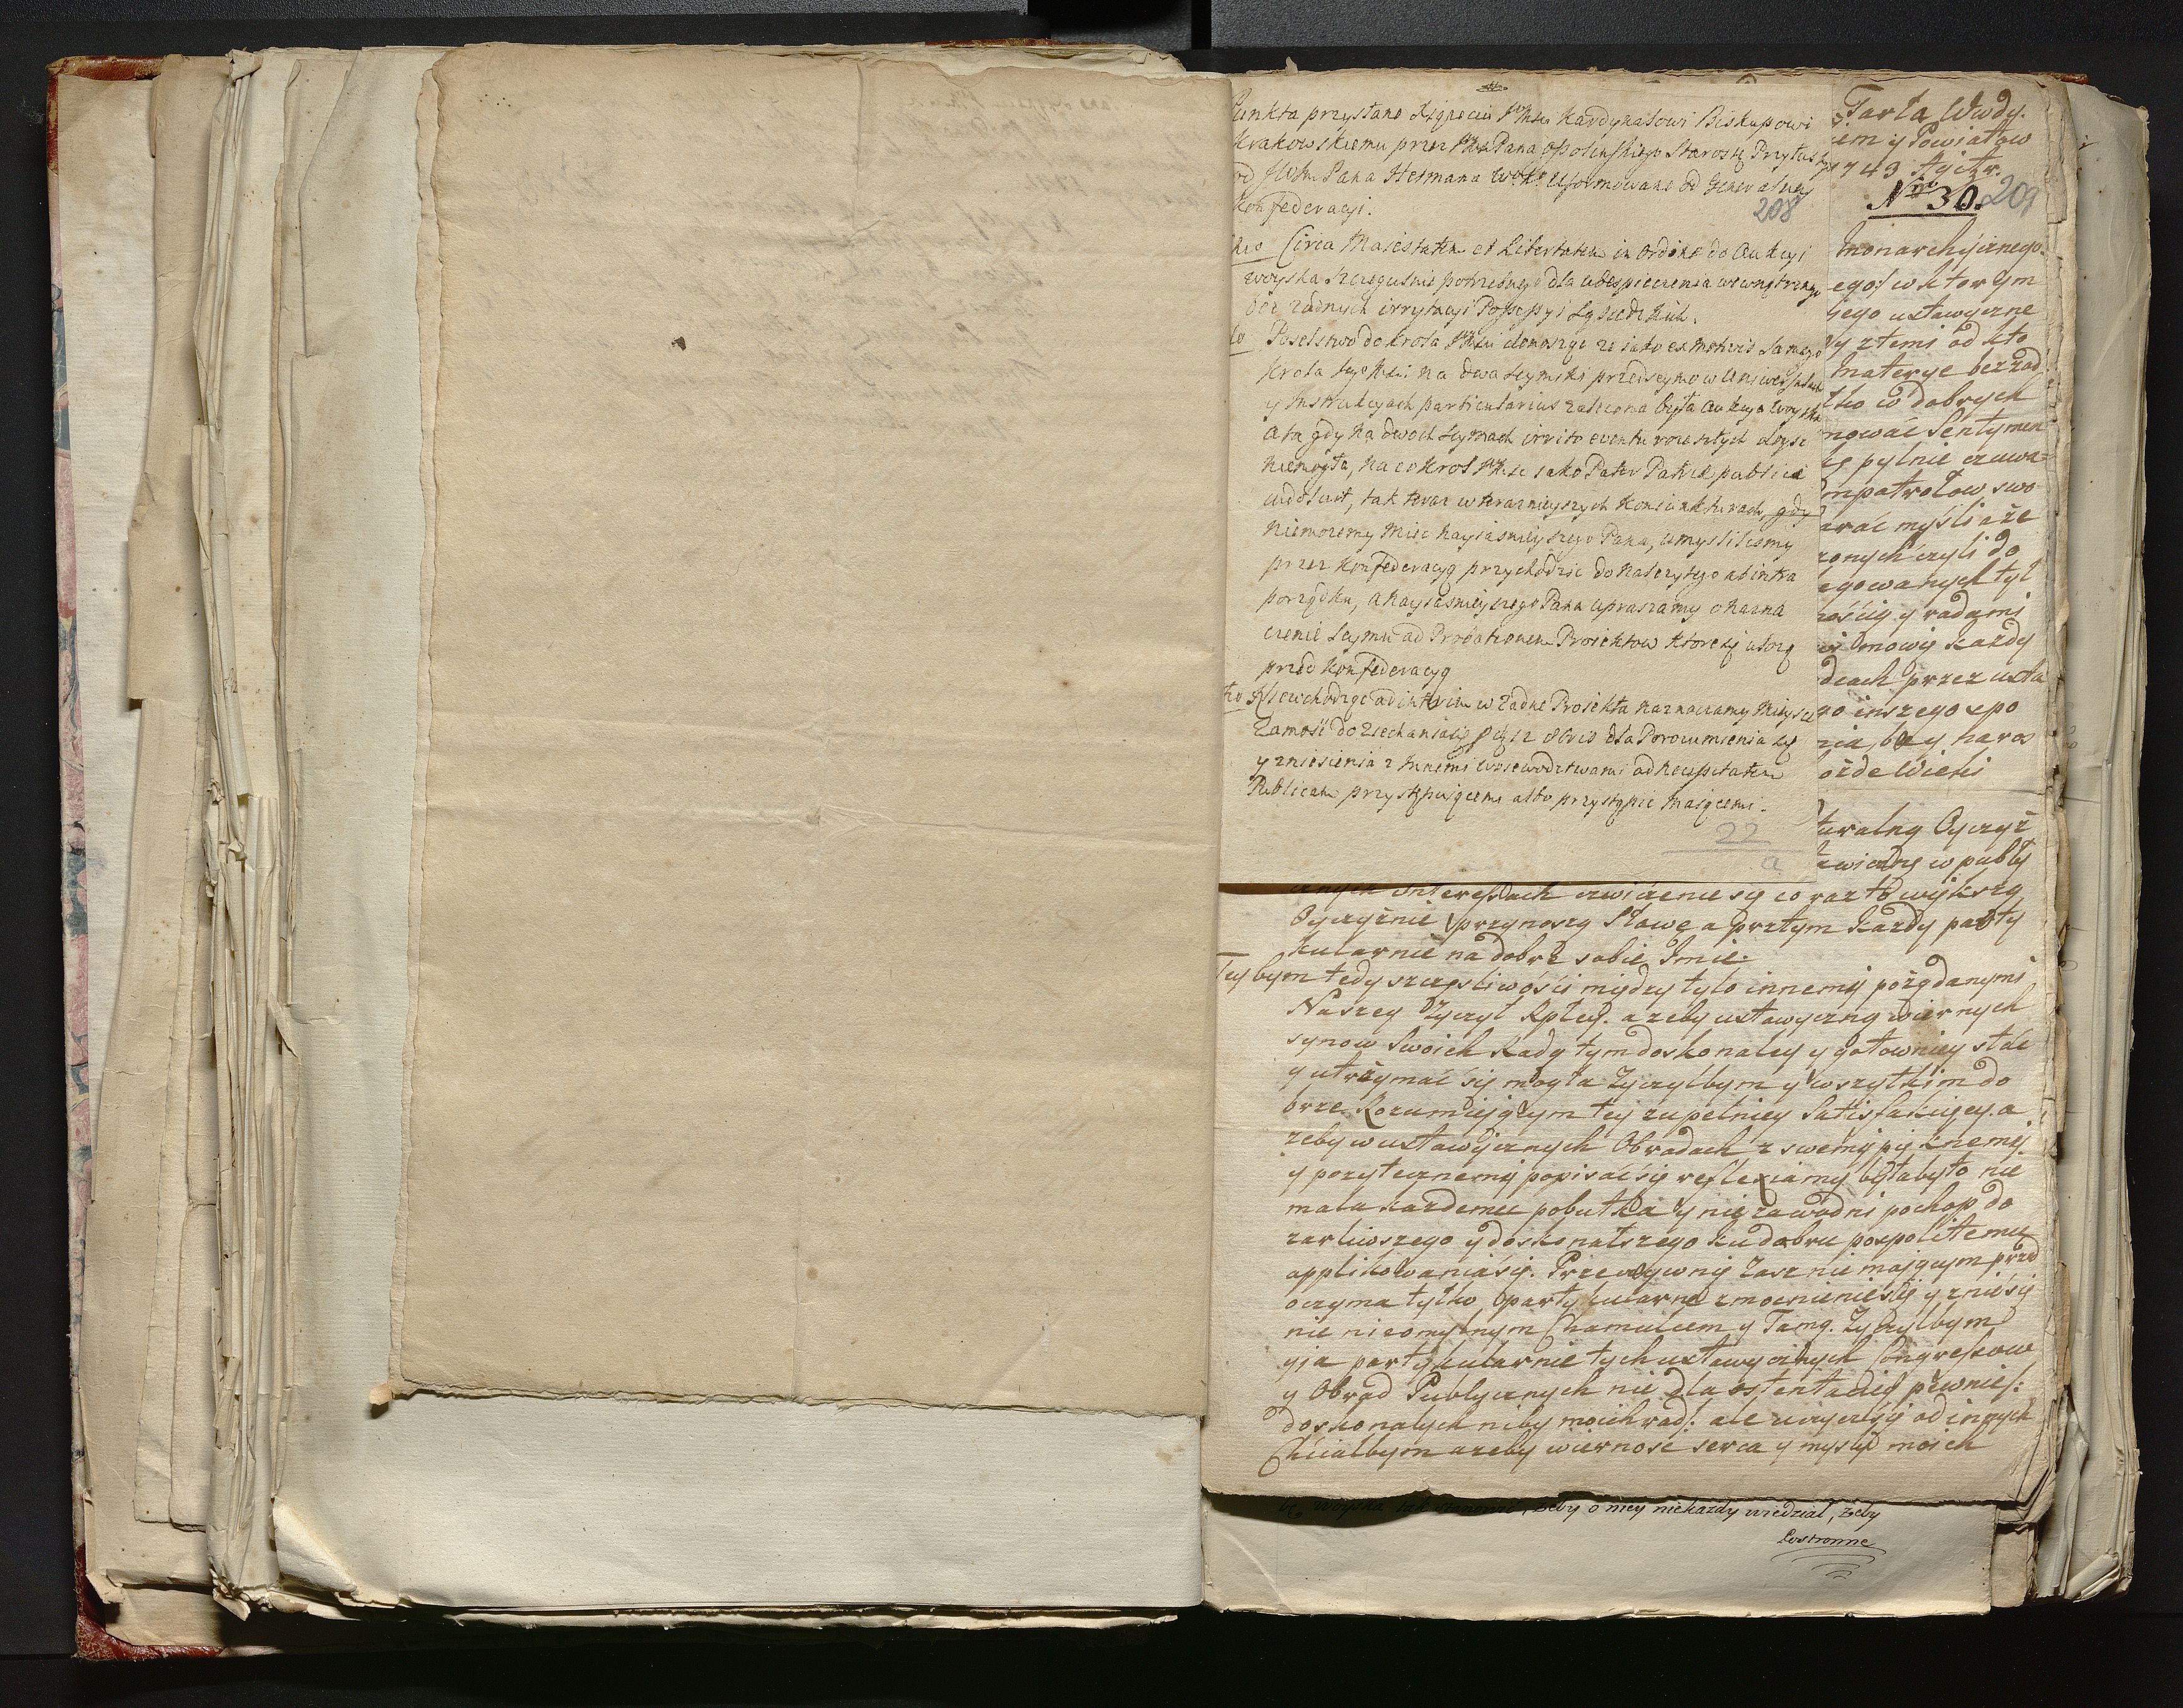 Punkta przysłane Xiążęciu JMci Kardynałowi Biskupowi
Krakowskiemu przez JMci Pana Opolinskiego Starostę
od JWo Pana Hetmana uformowane od Generalney
Konfederacyi.
208
Circa Maiestatem et Libertatem in ordine do Aukcyi
woyska szczegulnie potrzebney dla ubespieczenia wewnętrznego
bez żadnych irrytacyi Possessyi Sąsiedzkich.
Poselstwo do Krola JMci donosząc ze iako ex motivis samego
Krola JegoMci na dwa Seymiki przedseymowe w Uniwersałach
y Instrukcyach particularius zalecona była Aukcya woyska
A ta gdy na dwoch Seymach irrito eventu rozeszłych doyść
niemogła, na co Krol JMc iako Pater Patriæ publice
indoluit, tak teraz w teraznieyszych Koniunkturach, gdy
niemożemy miec Nayiasnieyszego Pana, umyslilismy
przez Konfederacyą przychodzic do należytego ab intra
porządku, a Nayiasnieyszego Pana upraszamy o nazna
czenie Seymu ad Probationem Proiektow ktore się ułożą
przed Konfederacyą
Nie wchodząc ad interim w żadne Proiekta naznaczamy mieysce
Zamość do ziechania się pro 12 8bris dla Porozumienia się
y zniesienia z innemi Woiewodztwami ad necessitatem
Publicam przystępuiącemi albo przystąpić maiącemi.
22
a
Tarła Wwdy.
em y Powiatow
1743 Agitr.
Nro 30. 209
monarchicznego.
ego/ w ktorym
jego ustawyczne
y ztemi od kto
materye bez żad
lko w dobrych
nować Sentymen
ię pylnie czuwa=
mpatrołow swo
arać myśli aże
zonych czyli do
egowanych tyl
nością y radami
mowię każdy
dcach przez usta
go inszego spo
nia, by y naros
ożde Wieki
turalną Oyczyź
zwierdzę w publi
cznych Interessach cwiczenie się co raz to większą
Oyczyznie przynoszą Sławę a przytym każdy party
kularnie na dobre sobie Imie.
Tey bym tedy szczęsliwości między tylo innemi pożądanymi
Naszey życzył Rpltey. azeby ustawyczną wiernych
synow Swoich Radą tym doskonaley y gotowniey stać
y utrzymać się mogła życzyłbym y wszytkim do
brze Rozumiejącym tey zupelniey Satisfakcyey. a
zeby w ustawycznych Obradach z swemi pięknemi
y pozytecznemi popisać się reflexiamy byłaby to nie
mała kazdemu pobutka y niezawodni pochop do
zarliwszego y doskonalszego ku dobru pospolitemu
applikowania się. Przeciwnie zasz nie mającym przed
oczyma tylko partykularne zmocnienie się y znieśię
nie nieomylnym Chamulcem y Tamą. Życzyłbym
y ja partykularnie tych ustawycznych Congressow
y Obrad Publycznych nie dla ostentacij pewnie/:
doskonałych niby moich rad/: ale uczyć się od innych
Chciałbym azeby wierność serca y mysli moich
żeby o niey niekażdy wiedział, żeby
Postronne